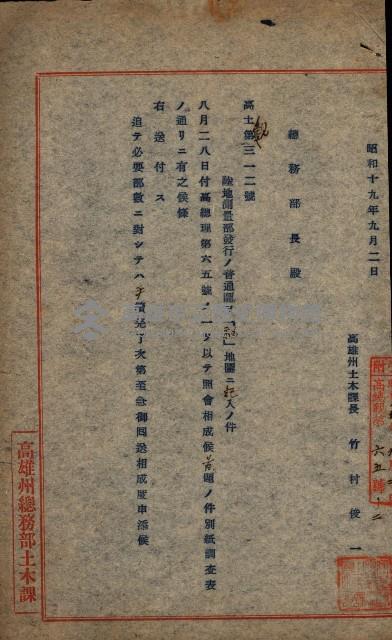 昭和十九年九月二日
高雄州土木課長 竹村俊一
總務部長殿
高土第三一二號
陸地測量部發行ノ普通圖 地圖ニ 入ノ件
八月二八日付高總理第六五號ノ一ヲ以テ照會相成候首題ノ件別紙調查表
ノ通リニ有之候條
右送付ス
追テ必要部數ニ對シテハ 完了次第至急御回送相成度申添候
高雄州總務部土木課